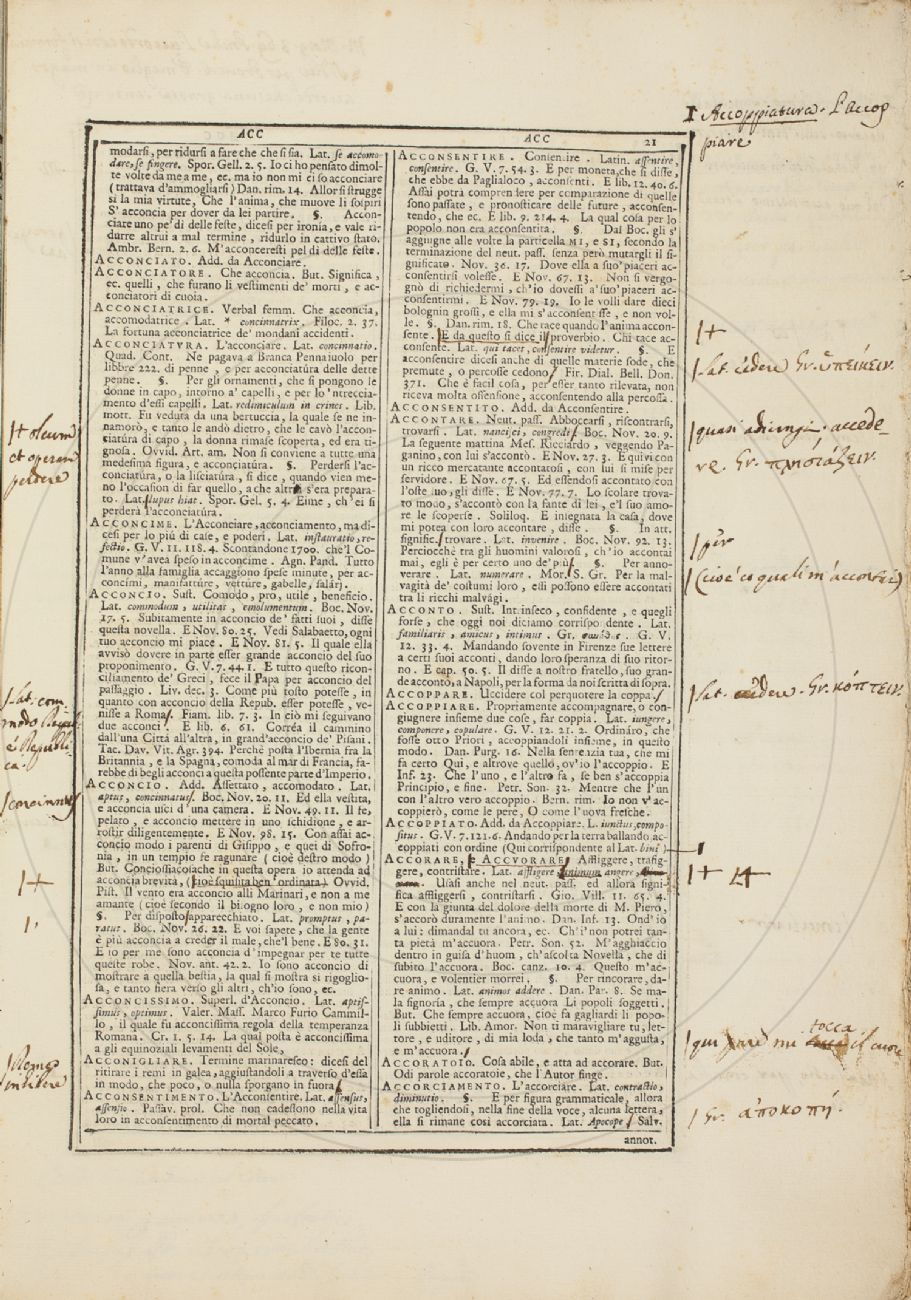 Accoppiatura. L'accop
piare
ACC
ACC
21
modarsi, per ridursi a fare che che si sia. Lat. se accomo-
dare, se fingere. Spor. Gell. 2. 5. Io ci ho pensato dimol-
te volte da me a me, ec. ma io non mi ci so acconciare
(trattava d'ammogliarsi) Dan. rim. 14. Allor si strugge
sì la mia virtute, Che l'anima, che muove li sospiri
S' acconcia per dover da lei partire. §. Accon-
ciare uno pe'dì delle feste, dicesi per ironia, e vale ri-
durre altrui a mal termine, ridurlo in cattivo stato.
Ambr. Bern. 2. 6. M'acconceresti pel dì delle feste.
ACCONCIATO. Add. da Acconciare.
ACCONCIATORE. Che acconcia. But. Significa,
ec. quelli, che furano li vestimenti de' morti, e ac-
conciatori di cuoia.
ACCONCIATRICE. Verbal femm. Che acconcia,
accomodatrice. Lat. * concinnatrix. Filoc. 2. 37.
La fortuna acconciatrice de' mondani accidenti.
ACCONCIATVRA. L'acconciare. Lat. concinnatio.
Quad. Cont. Ne pagava a Branca Pennaiuolo per
libbre 222. di penne, e per acconciatúra delle dette
penne. §. Per gli ornamenti, che si pongono le
donne in capo, intorno a' capelli, e per lo 'ntrecciа-
mento d'essi capelli. Lat. redimiculum in crines. Lib.
mott. Fu veduta da una bertuccia, la quale se ne in-
namorò, e tanto le andò dietro, che le cavò l'accon-
ciatúra di capo, la donna rimase scoperta, ed era ti-
gnosa. Ovvid. Art. am. Non si conviene a tutte una
medesima figura, e acconciatúra. §. Perdersi l'ac-
conciatúra, o la lisciatura, si dice, quando vien me-
no l'occasion di far quello, a che altri s'era prepara-
to. Lat. lupus hiat. Spor. Gel. 5. 4. Eime, ch'ei si
perderà l'acconciatura.
ACCONCIME. L'Acconciare, acconciamento, ma di-
cesi per lo più di case, e poderi. Lat. instauratio, re-
fectio. G. V. 11. 118. 4. Scontandone 1700. che'l Co-
mune v'avea speso in acconcime. Agn. Pand. Tutto
l'anno alla famiglia accaggiono spese minute, per ac-
concimi, manifatture, vetture, gabelle, salárj.
ACCONCIO. Sust. Comodo, pro, utile, beneficio.
Lat. commodum, utilitas, emolumentum. Boc. Nov.
17. 5. Subitamente in acconcio de' fatti suoi, disse
questa novella. E Nov. 80. 25. Vedi Salabaetto, ogni
tuo acconcio mi piace. E Nov. 81. 5. Il quale ella
avvisò dovere in parte esser grande acconcio del suo
proponimento. G. V. 7. 44. 1. E tutto questo ricon-
ciliamento de' Greci, fece il Papa per acconcio del
passaggio. Liv. dec. 3. Come più tosto potesse, in
quanto con acconcio della Repub. esser potesse, ve-
nisse a Roma. Fiam. lib. 7. 3. In ciò mi seguivano
due acconci. E lib. 6. 61. Corréa il cammino
dall'una Città all'altra, in grand'acconcio de' Pisani.
Tac. Dav. Vit. Agr. 394. Perchè posta l'Ibernia fra la
Britannia, e la Spagna, comoda al mar di Francia, fa-
rebbe di begli acconci a questa possente parte d'Imperio.
ACCONCIO. Add. Assettato, accomodato. Lat.
aptus, concinnatus. Boc. Nov. 20. 11. Ed ella vestita,
e acconcia uscì d'una camera. E Nov. 49. 11. Il fe,
pelato, e acconcio mettere in uno schidione, e ar-
rostir diligentemente. E Nov. 98. 15. Con assai ac-
concio modo i parenti di Gisippo, e quei di Sofro-
nia, in un tempio fe ragunare (cioè destro modo)
But. Conciossiacosache in questa opera io attenda ad
acconcia brevità, (cioè squisita ben'ordinata). Ovvid.
Pist. Il vento era acconcio alli Marinari, e non a me
amante (cioè secondo il bisogno loro, e non mio)
§. Per disposto apparecchiato. Lat. promptus, pa-
ratus. Boc. Nov. 26. 22. E voi sapete, che la gente
è più acconcia a creder il male, che'l bene. E 80. 31.
E io per me sono acconcia d'impegnar per te tutte
queste robe. Nov. ant. 42. 2. Io sono acconcio di
mostrare a quella bestia, la qual si mostra sì rigoglio-
sa, e tanto fiera verso gli altri, ch'io sono, ec.
ACCONCISSIMO. Superl. d'Acconcio. Lat. aptis-
simus, optimus. Valer. Mass. Marco Furio Cammil-
lo, il quale fu acconcissima regola della temperanza
Romana. Cr. 1. 5. 14. La qual posta è acconcissima
a gli equinoziali levamenti del Sole.
ACCONIGLIARE. Termine marinaresco: dicesi del
ritirare i remi in galea, aggiustandoli a traverso d'essa
in modo, che poco, o nulla sporgano in fuora.
ACCONSENTIMENTO. L'Acconsentire. Lat. assensus,
assensio. Passav. prol. Che non cadessono nella vita
loro in acconsentimento di mortal peccato.
ACCONSENTIRE. Consentire. Latin. assentire,
consentire. G. V. 7. 54. 3. E per moneta, che si disse,
che ebbe da Paglialoco, acconsentì. E lib. 12. 40. 6.
Assai potrà comprendere per comparazione di quelle
sono passate, e pronosticare delle future, acconsen-
tendo, che ec. E lib. 9. 214. 4. La qual cosa per lo
popolo non era acconsentita. §. Dal Boc. gli s'
aggiugne alle volte la particella MI, e SI, secondo la
terminazione del neut. pass. senza però mutargli il si-
gnificato. Nov. 36. 17. Dove ella a suo' piaceri ac-
consentirsi volesse. E Nov. 67. 13. Non si vergo-
gnò di richiedermi, ch'io dovessi a' suo' piaceri ac-
consentirmi. E Nov. 79. 19. Io le volli dare dieci
bolognin grossi, e ella mi s'acconsentisse, e non vol-
le. §. Dan. rim. 18. Che tace quando l'anima accon-
sente. E da questo si dice il proverbio. Chi tace ac-
consente. Lat. qui tacet, consentire videtur. §. E
acconsentire dicesi anche di quelle materie sode, che
premute, o percosse cedono. Fir. Dial. Bell. Don.
371. Che è facil cosa, per esser tanto rilevata, non
riceva molta offensione, acconsentendo alla percossa.
ACCONSENTITO. Add. da Acconsentire.
ACCONTARE. Neut. pass. Abboccarsi, riscontrarsi,
trovarsi. Lat. nancisci, congredi. Boc. Nov. 20. 9.
La seguente mattina Mes. Ricciardo, veggendo Pa-
ganino, con lui s'accontò. E Nov. 27. 3. E quivi con
un ricco mercatante accontatosi, con lui si mise per
servidore. E Nov. 67. 5. Ed essendosi accontato con
l'oste suo, gli disse. E Nov. 77. 7. Lo scolare trova-
to modo, s'accontò con la fante di lei, e'l suo amo-
re le scoperse. Soliloq. E insegnata la casa, dove
mi potea con loro accontare, disse. §. In att.
signific. trovare. Lat. invenire. Boc. Nov. 92. 13.
Perciocchè tra gli huomini valorosi, ch'io accontai
mai, egli è per certo uno de' più. §. Per anno-
verare. Lat. numerare. Mor. S. Gr. Per la mal-
vagità de' costumi loro, essi possono essere accontati
tra li ricchi malvági.
ACCONTO. Sust. Intrinseco, confidente, e quegli
forse, che oggi noi diciamo corrispondente. Lat.
familiaris, amicus, intimus. Gr. G. V.
12. 33. 4. Mandando sovente in Firenze sue lettere
a certi suoi acconti, dando loro speranza di suo ritor-
no. E cap. 50. 5. Il disse a nostro fratello, suo gran-
de acconto, a Nápoli, per la forma da noi scritta di sopra.
ACCOPPARE. Uccider col perquotere la coppa.
ACCOPPIARE. Propriamente accompagnare, o con-
giugnere insieme due cose, far coppia. Lat. iungere,
componere, copulare. G. V. 12. 21. 2. Ordináro, che
fosse otto Priori, accoppiandoli insieme, in questo
modo. Dan. Purg. 16. Nella sentenzia tua, che mi
fa certo Qui, e altrove quello, ov'io l'accoppio. E
Inf. 23. Che l'uno, e l'altro fa, se ben s'accoppia
Principio, e fine. Petr. Son. 32. Mentre che l'un
con l'altro vero accoppio. Bern. rim. Io non v'ac-
coppierò, come le pere, O come l'uova fresche.
ACCOPPIATO. Add. da Accoppiare. L. iunctus, compo-
situs. G. V. 7. 121. 6. Andando per la terra ballando ac-
coppiati con ordine (Qui corrispondente al Lat. bini)
ACCORARE, e ACCVORARE. Affliggere, trafig-
gere, contristare. Lat. affligere, animum angere,
Usasi anche nel neut. pass. ed allora signi-
fica affliggersi, contristarsi. Gio. Vill. 11. 65. 4.
E con la giunta del dolore della morte di M. Piero,
s'accorò duramente l'animo. Dan. Inf. 13. Ond'io
a lui: dimandal tu ancora, ec. Ch'i' non potrei tan-
ta pietà m'accuora. Petr. Son. 52. M'agghiaccio
dentro in guisa d'huom, ch'ascolta Novella, che di
subito l'accuora. Boc. canz. 10. 4. Questo m'ac-
cuora, e volentier morrei. §. Per rincorare, da-
re animo. Lat. animos addere. Dan. Par. 8. Se ma-
la signoria, che sempre accuora Li popoli soggetti.
But. Che sempre accuora, cioè fa gagliardi li popo-
li subbietti. Lib. Amor. Non ti maravigliare tu, let-
tore, e uditore, di mia loda, che tanto m'aggusta,
e m'accuora.
ACCORATOIO. Cosa abile, e atta ad accorare. But.
Odi parole accoratoie, che l'Autor finge.
ACCORCIAMENTO. L'accorciare. Lat. contractio,
diminutio. §. E per figura grammaticale, allora
che togliendosi, nella fine della voce, alcuna lettera,
ella si rimane così accorciata. Lat. Apocope. Salv.
annot.
oleum
et operam
perdere
Lat. com
modo Reipub.
è Republi
ca.
concinnus
Remos
inhibere
Lat. cedere Gr. ὑπείκειν.
quasi adiungi. accede-
re. Gr. προστάξειν.
per
(cioè co quali m'accontai)
Lat. cedere. Gr. κόπτειν.
qui pare mi tocca il cuore
Gr. ἀποκοπή.